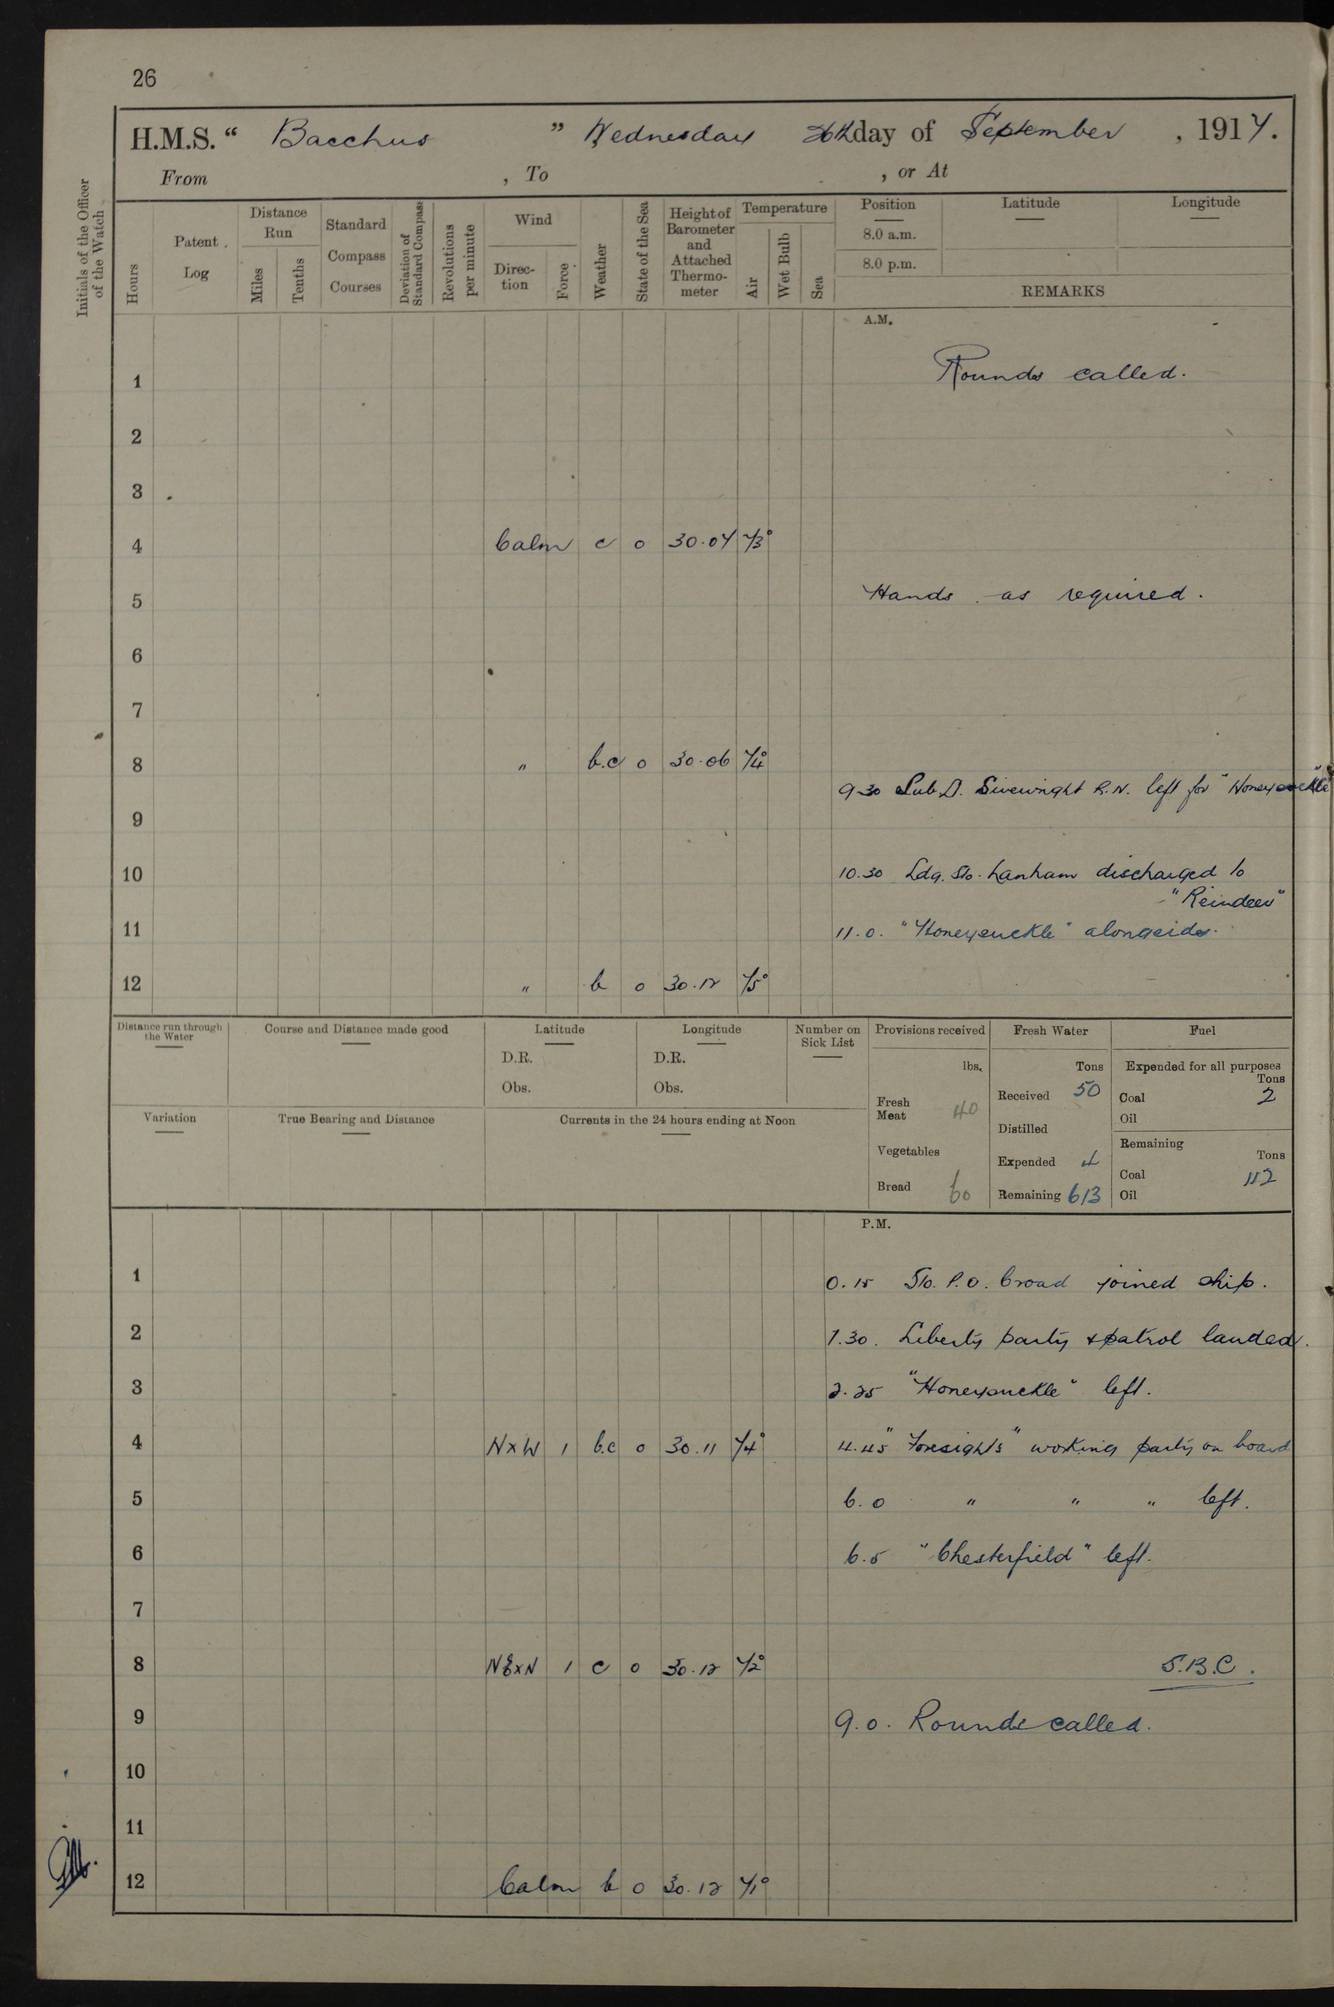 26
H.M.S. " Bacchus " Wednesday 26th day of September , 1917.
From , To , or At
Initials of the Officer of the Watch
Hours
Patent Log
Distance Run
Miles
Tenths
Standard Compass Courses
Deviation of Standard Compass
Revolutions per minute
Wind
Direc-tion
Force
Weather
State of the Sea
Height of Barometer and Attached Thermo-meter
Temperature
Air
Wet Bulb
Sea
Position
8.0 a.m.
8.0 p.m.
Latitude
Longitude
REMARKS
A.M.
1 Rounds called.
2
3
4 Calm c o 30.07 73°
5 Hands as required.
6
7
8 " b.c o 30.06 74°
9.30 Sub.Lt. Sivewright R.N. left for "Honeysuckle"
9
10 10.30 Ldg. Sto. Lanham discharged to
"Reindeer"
11 11.0. "Honeysuckle" alongside.
12 " b o 30.12 75°
Distance run through the Water
Course and Distance made good
Latitude
D.R.
Obs.
Longitude
D.R.
Obs.
Number on Sick List
Provisions received
lbs.
Fresh Meat 40
Vegetables
Bread 60
Fresh Water
Tons
Received 50
Distilled
Expended 4
Remaining 613
Fuel
Expended for all purposes
Tons
Coal 2
Oil
Remaining
Tons
Coal 112
Oil
Variation
True Bearing and Distance
Currents in the 24 hours ending at Noon
P.M.
1 0.15 Sto. P.O. Croad joined ship.
2 1.30. Liberty party & patrol landed.
3 2.25 "Honeysuckle" left.
4 NxW 1 b.c o 30.11 74° 4.45 "Foresight's" working party on board
5 6.0 " " " left.
6 6.5 "Chesterfield" left.
7
8 NExN 1 c o 30.12 72° S.B.C.
9 9.0. Rounds called.
10
11
12 Calm b o 30.12 71°